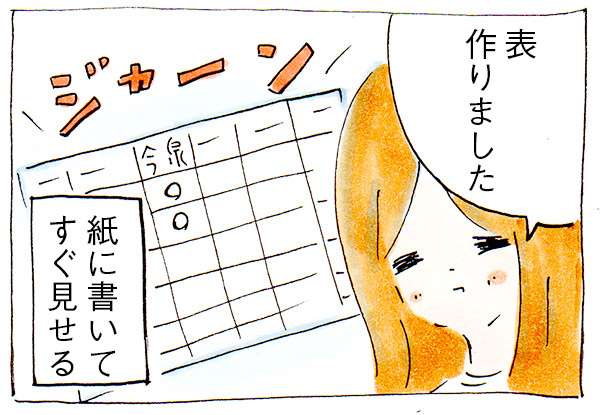 表
作りました
ジャーン
今泉
紙に書いて
すぐ見せる